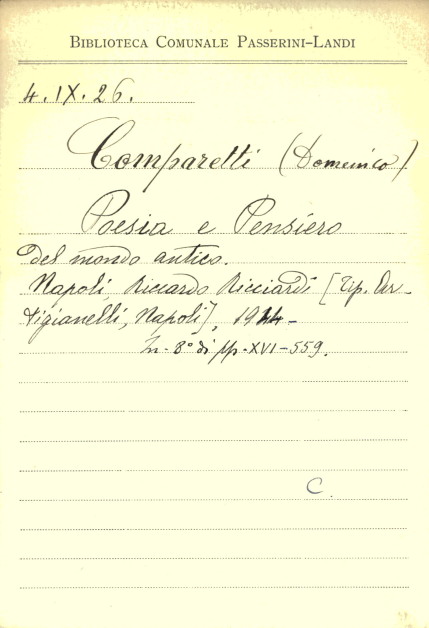 BIBLIOTECA COMUNALE PASSERINI-LANDI
4.IX.26.
Comparetti (Domenico).
Poesia e Pensiero
del mondo antico.
Napoli, Riccardo Ricciardi [Tip. Ar-
tigianelli, Napoli], 1944-
In-8° di pp. XVI-559.
C.